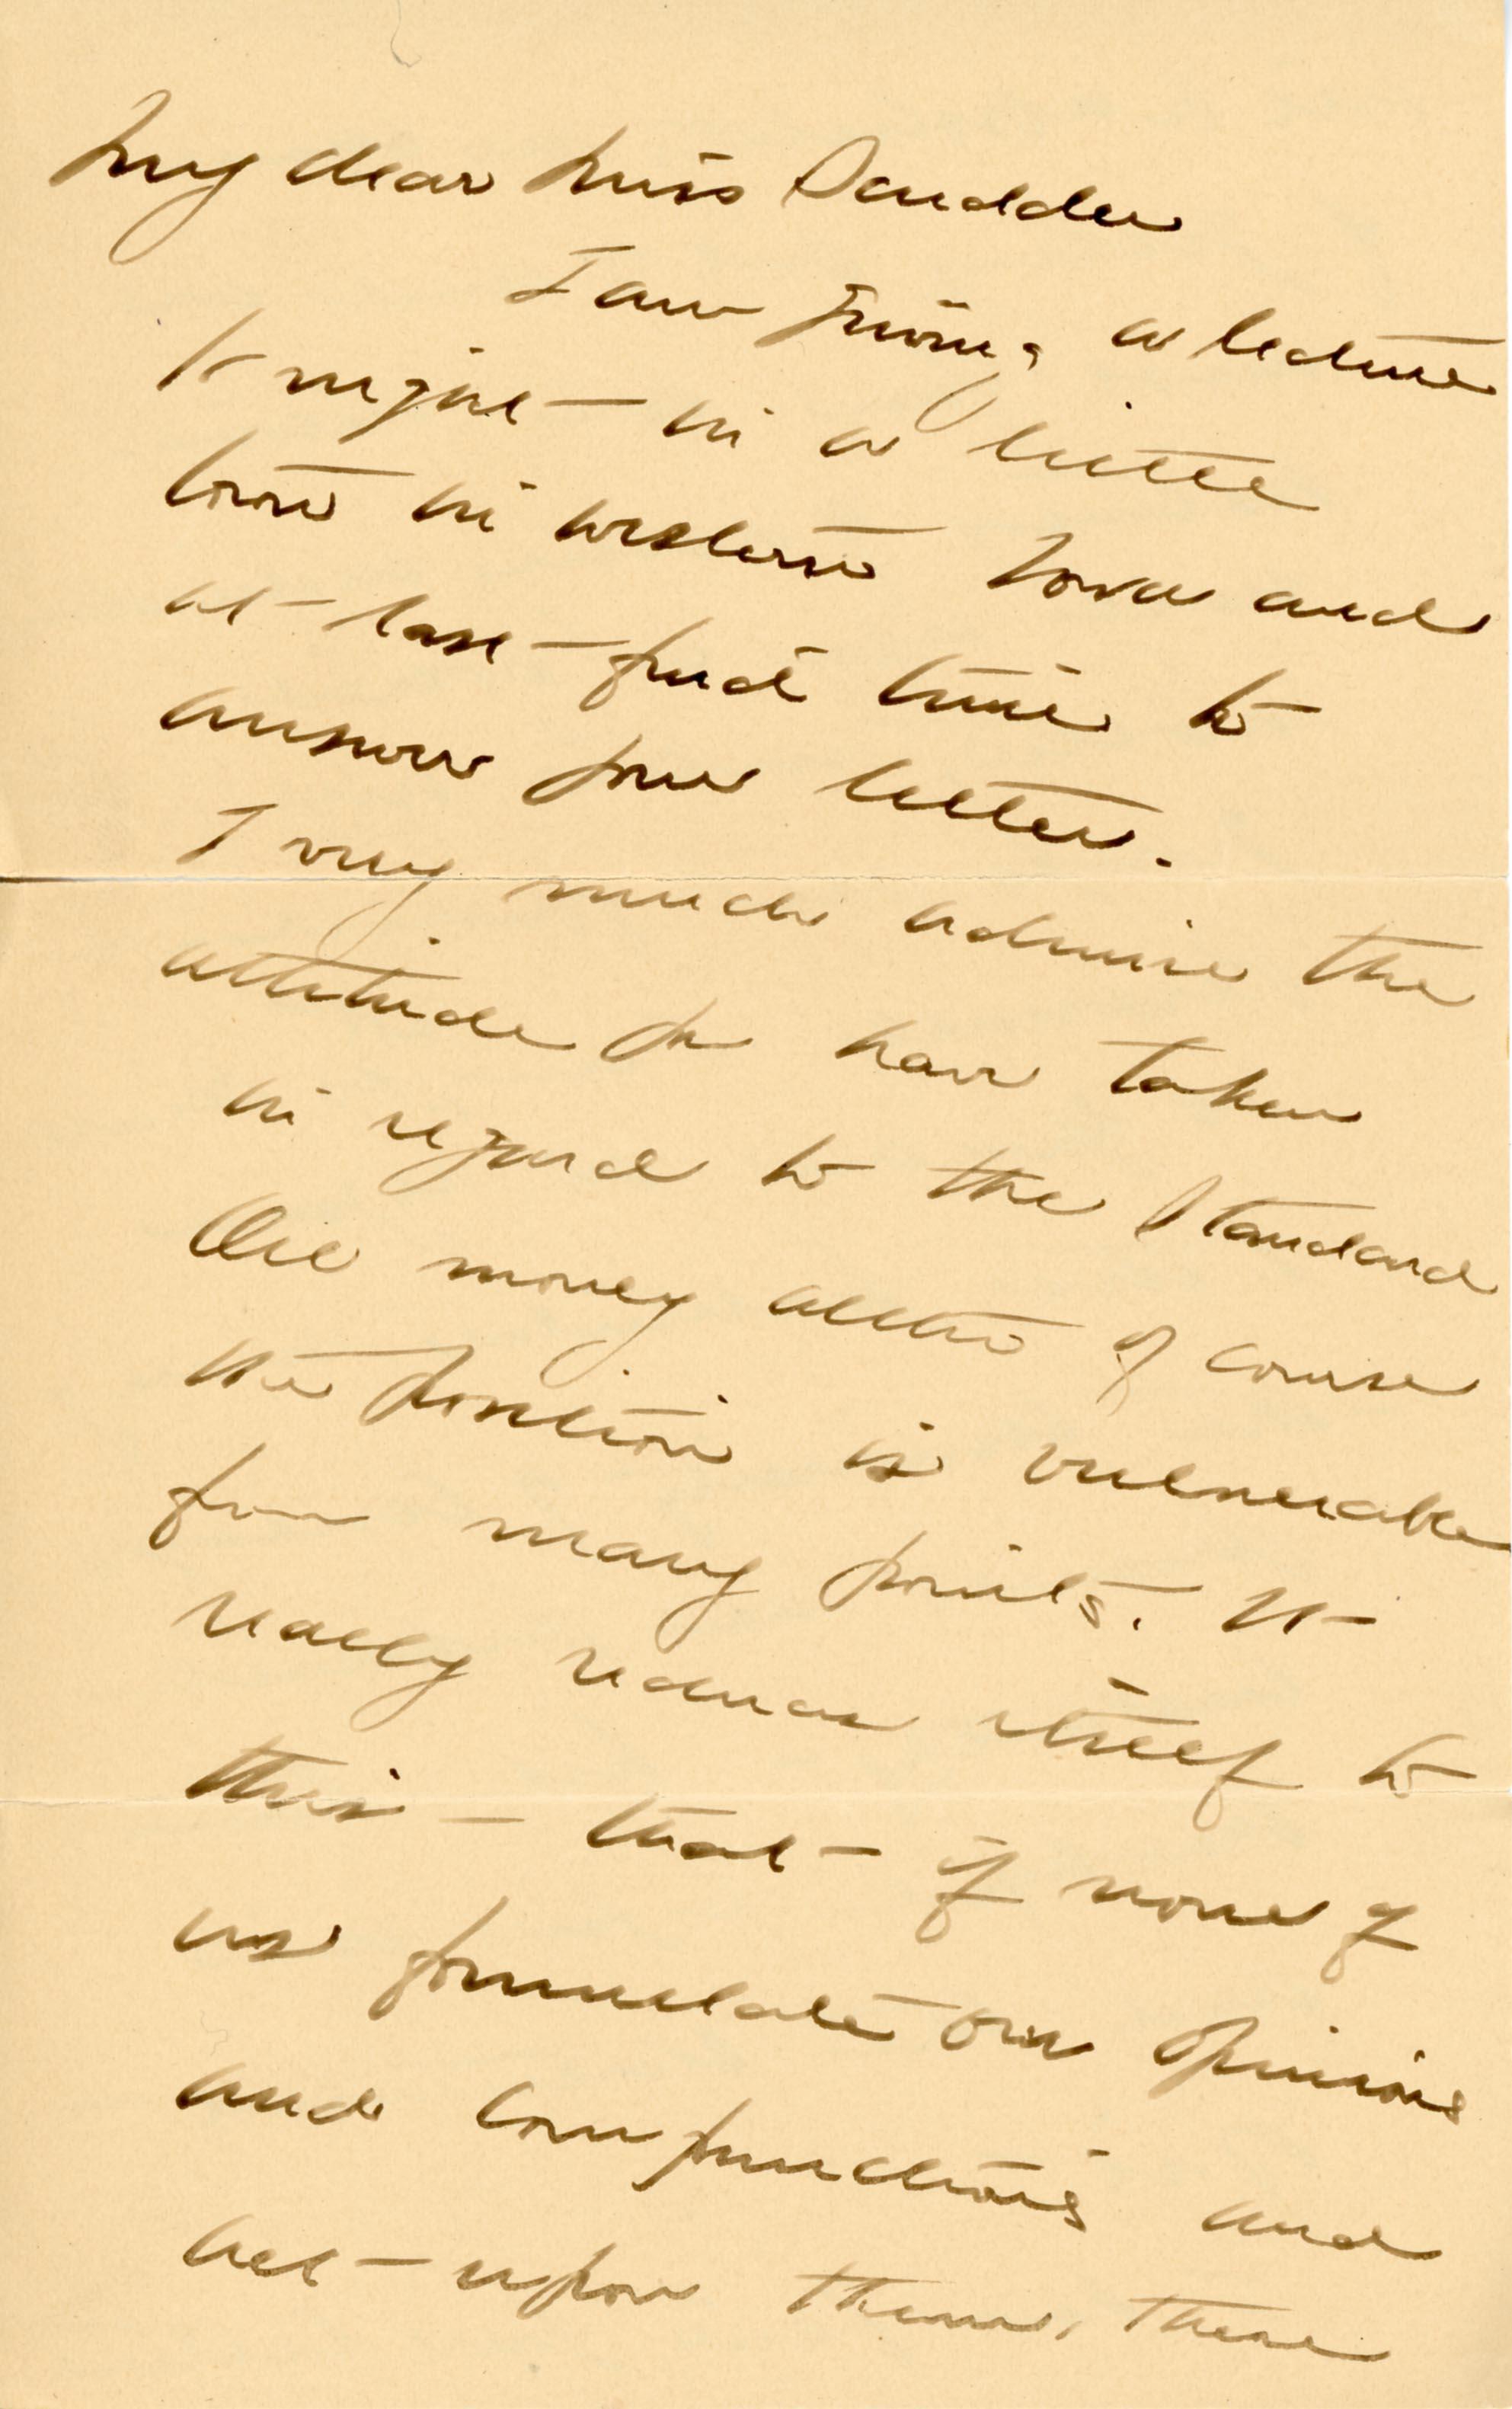 My dear Miss Scudder
I am giving a lecture
to night in a little
town in western Iowa and
at last find time to
answer your letter.
I very much admire the
attitude you have taken
in regard to the Standard
Oil money altho of course
the position is vulnerable
from many points. It
really reduces itself to
this – that if none of
us formulate our opinions
and compunctions and
act upon them, there